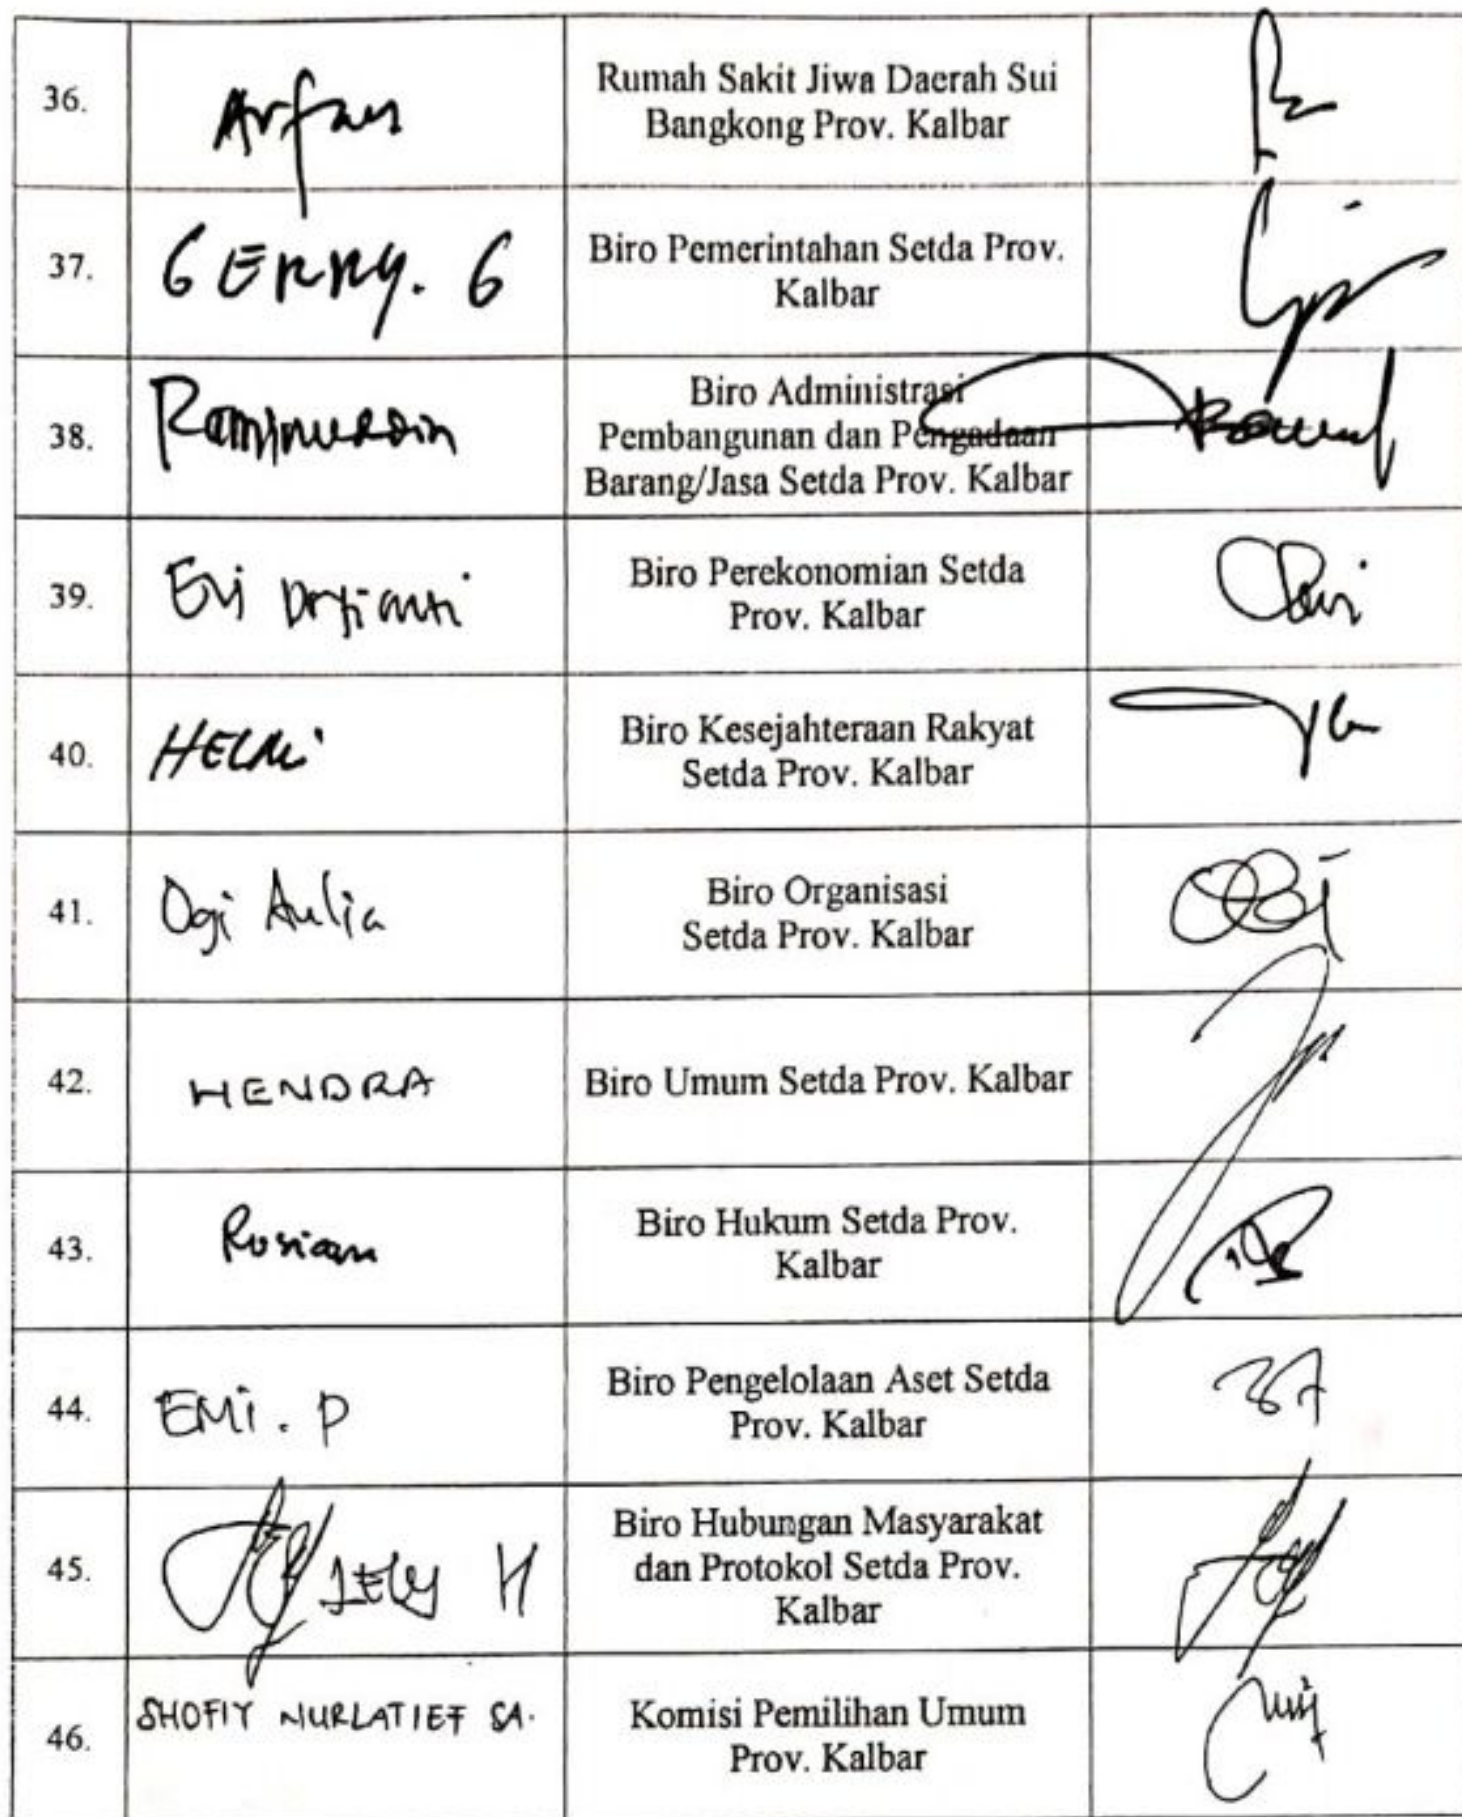 36.
Arfan
Rumah Sakit Jiwa Daerah Sui
Bangkong Prov. Kalbar
37.
GERRY. G
Biro Pemerintahan Setda Prov.
Kalbar
38.
Raminuddin
Biro Administrasi
Pembangunan dan Pengadaan
Barang/Jasa Setda Prov. Kalbar
39.
Evi
Biro Perekonomian Setda
Prov. Kalbar
40.
HELMi
Biro Kesejahteraan Rakyat
Setda Prov. Kalbar
41.
Ogi Aulia
Biro Organisasi
Setda Prov. Kalbar
42.
HENDRA
Biro Umum Setda Prov. Kalbar
43.
Biro Hukum Setda Prov.
Kalbar
44.
EMi. P
Biro Pengelolaan Aset Setda
Prov. Kalbar
45.
H
Biro Hubungan Masyarakat
dan Protokol Setda Prov.
Kalbar
46.
SHOFIY NURLATIEF SA.
Komisi Pemilihan Umum
Prov. Kalbar